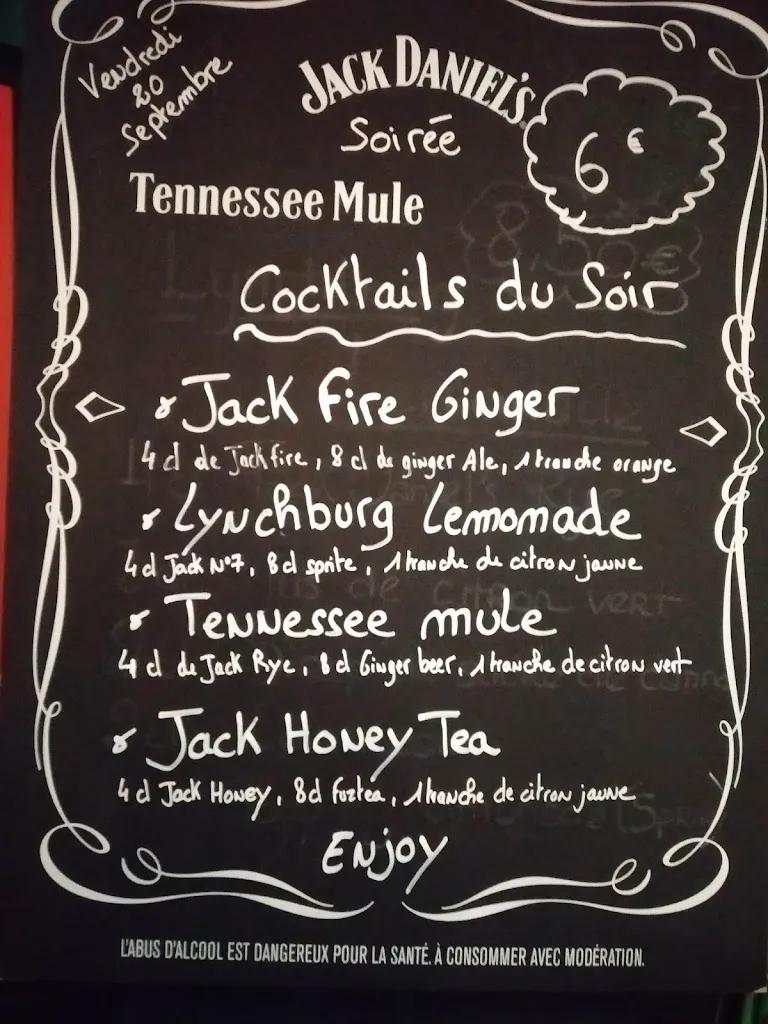 Vendredi
20
Septembre
JACK DANIEL'S
Soirée
6 €
Tennessee Mule
8,50€
Cocktails du Soir
Jack Fire Ginger
4 cl de Jack fire, 8 cl de ginger Ale, 1 tranche orange
Lynchburg Lemomade
4 cl Jack N°7, 8 cl sprite, 1 tranche de citron jaune
Tennessee mule
4 cl de Jack Rye, 8 cl Ginger beer, 1 tranche de citron vert
Jack Honey Tea
4 cl Jack Honey, 8 cl fuztea, 1 tranche de citron jaune
Enjoy
L'ABUS D'ALCOOL EST DANGEREUX POUR LA SANTÉ. À CONSOMMER AVEC MODÉRATION.